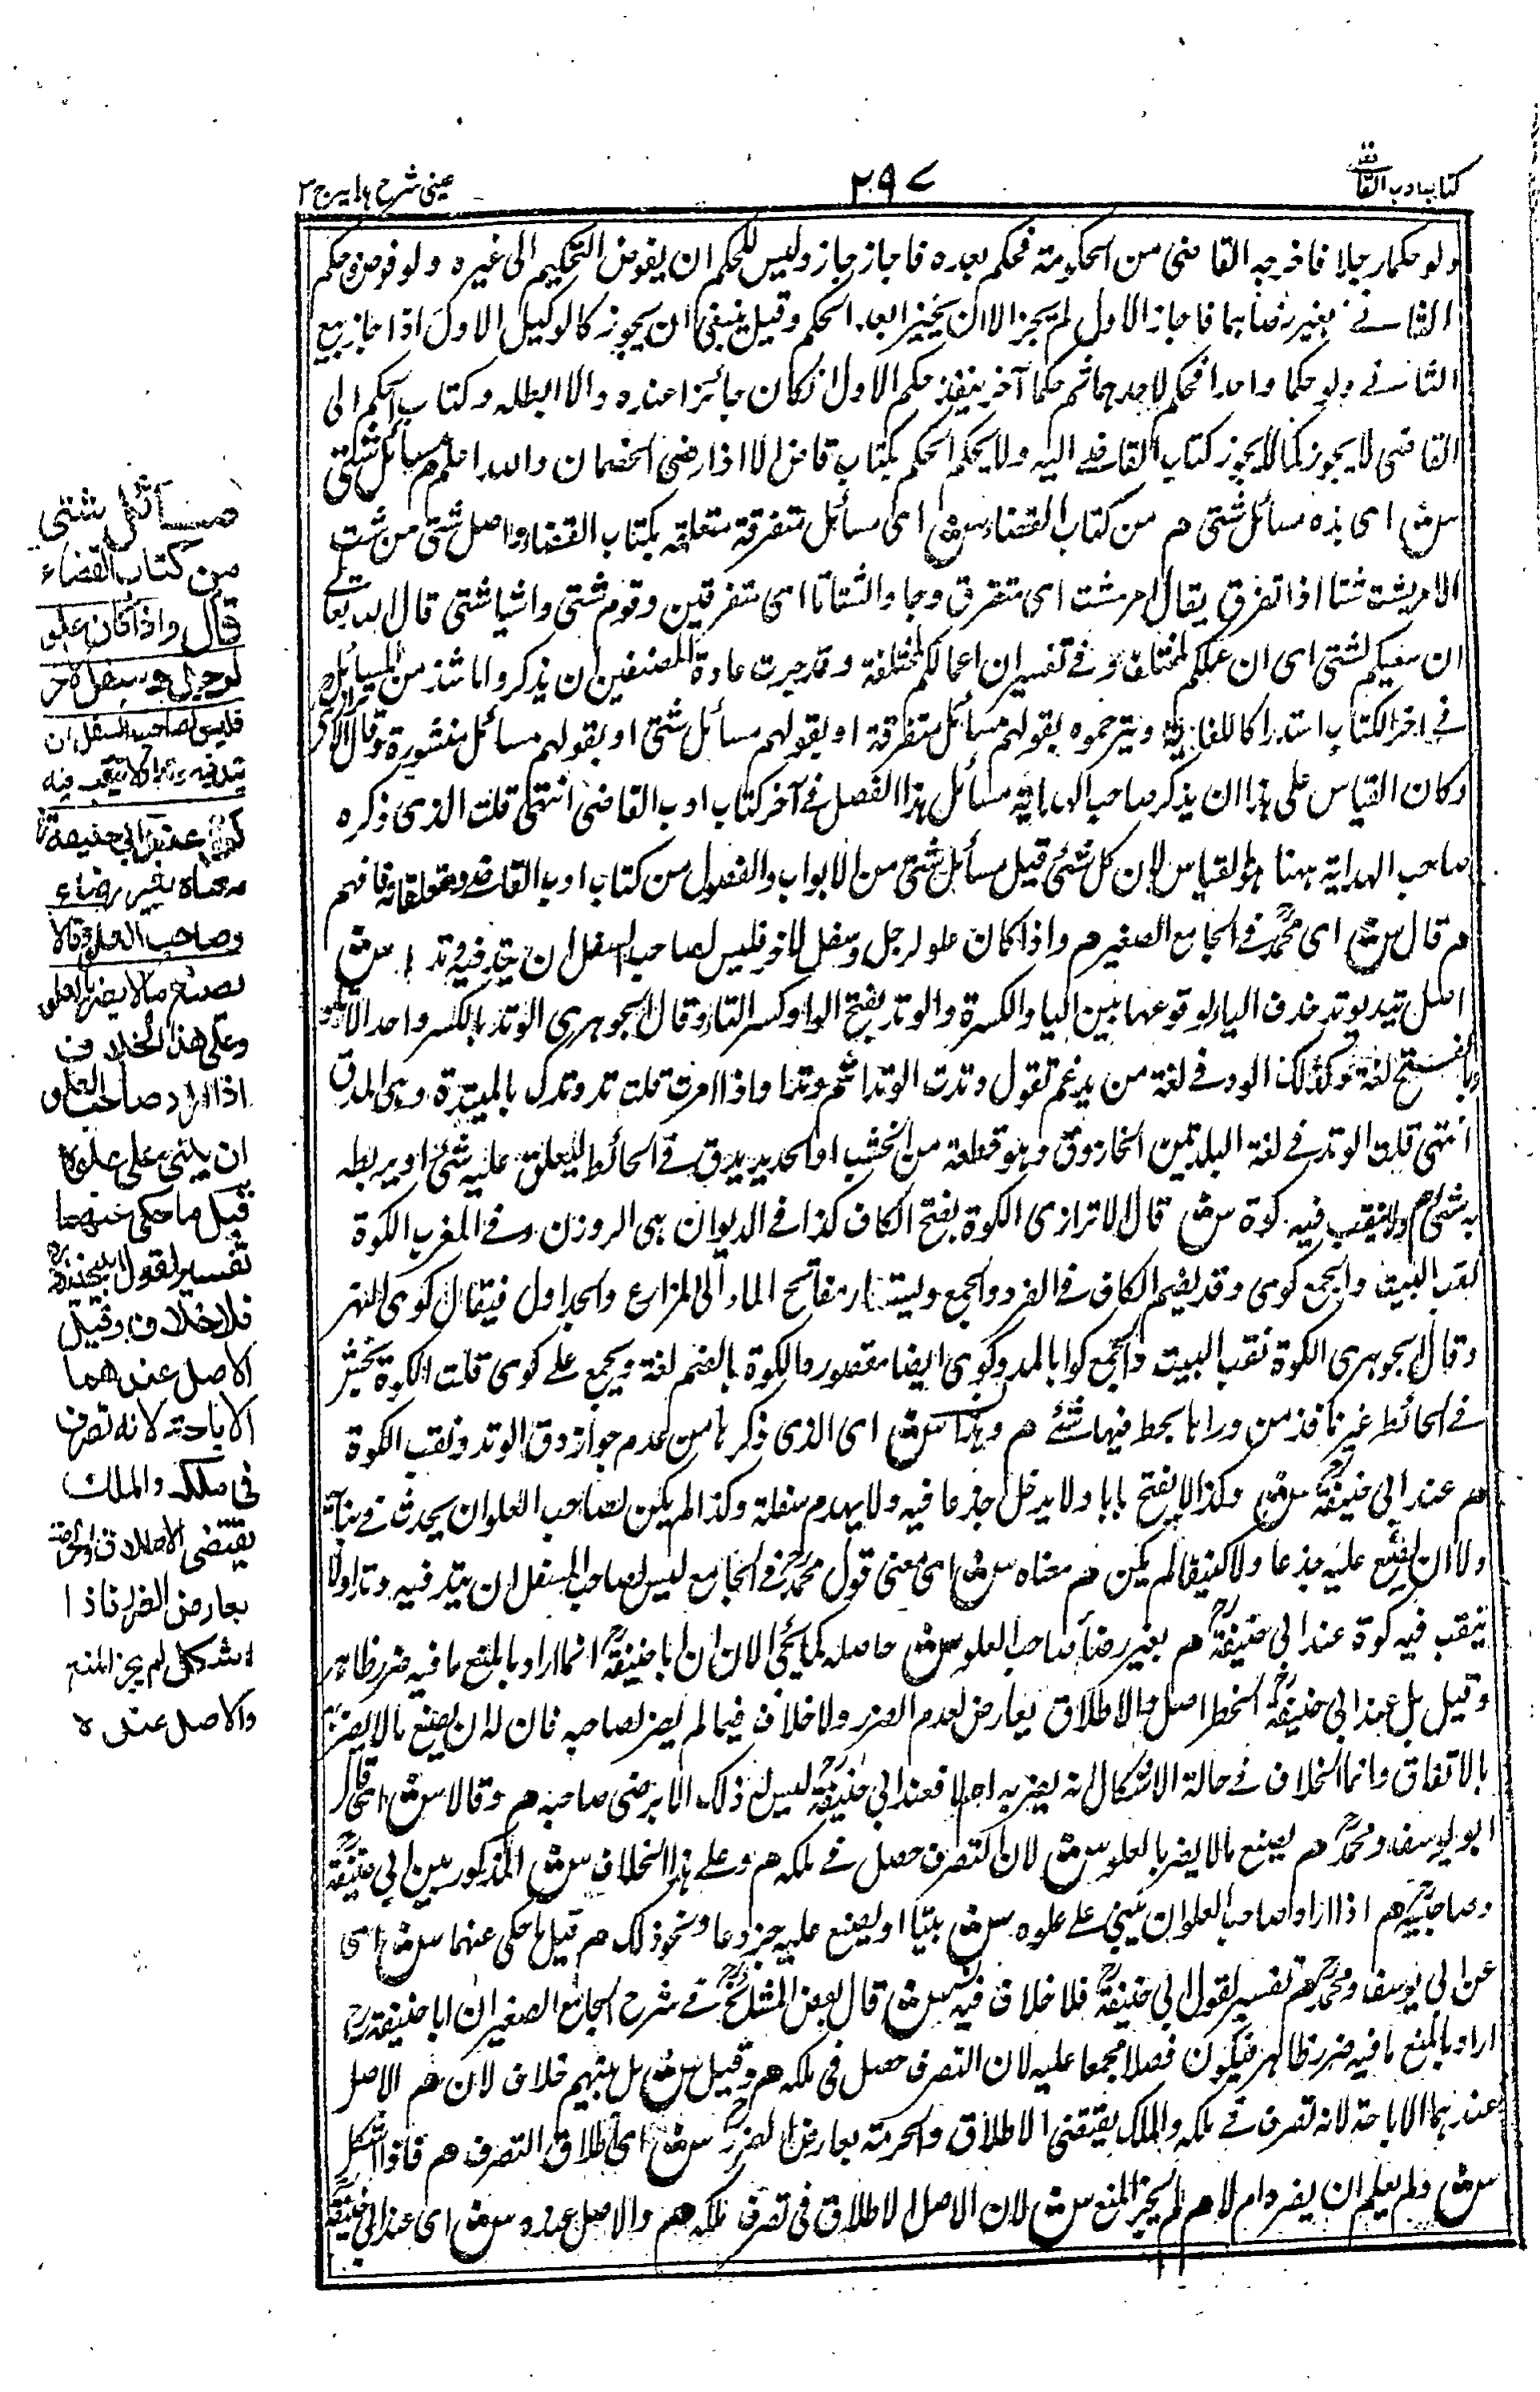 كتاب ادب القاضى
٢٩٧
عينى شرح هدايه ج ٣
ولو حكما رجلا فاخرجه القاضى من الحكومة فحكم بعده فاجاز جاز وليس للحكم ان يفوض التحكيم الى غيره ولو فوض وحكم
الثانى بغير رضاهما فاجاز الاول لم يجز الا ان يجيزا بعد الحكم وقيل ينبغى ان يجوز كالوكيل الاول اذا اجاز بيع
الثانى ولو حكما واحدا فحكم لاحدهما ثم حكما آخر ينفذ حكم الاول ان كان جائزا عنده والا ابطله وكتاب الحكم الى
القاضى لا يجوز كما لا يجوز كتاب القاضى اليه ولا يحكم الحكم بكتاب قاض الا اذا رضى الخصمان والله اعلم م مسائل شتى
ش اى هذه مسائل شتى م من كتاب القضاء ش اى مسائل متفرقة متعلقة بكتاب القضاء واصل شتى من شت
الامر يشت شتا اذا تفرق يقال امر شت اى متفرق وجاؤا اشتاتا اى متفرقين وقوم شتى واشيا شتى قال الله تعالى
ان سعيكم لشتى اى ان عملكم لمختلف وفى تفسير ان اعمالكم لمختلفة وقد جرت عادة المصنفين ان يذكروا ما شذ من المسائل
فى اخر الكتاب استدراكا للفائت ويترجموه بقولهم مسائل متفرقة او بقولهم مسائل شتى او بقولهم مسائل منثورة وقال الاترازى
وكان القياس على هذا ان يذكر صاحب الهداية مسائل هذا الفصل فى آخر كتاب ادب القاضى انتهى قلت الذى ذكره
صاحب الهداية ههنا هو القياس لان كل شئ قيل مسائل شتى من الابواب والفصول من كتاب ادب القاضى ومتعلقاته فافهم
م قال ش اى محمد فى الجامع الصغير م واذا كان علو لرجل وسفل لاخر فليس لصاحب السفل ان يتد فيه وتدا ش
اصل يتد يوتد حذف الياء لوقوعها بين اليا والكسرة والوتد بفتح الواو وكسر التاء وقال الجوهرى الوتد بالكسر واحد الاوتاد
وبالفتح لغة وكذلك الود فى لغة من يدغم تقول وتدت الوتد اتد وتدا واذا امرت قلت تد وتدك بالميتدة وهى المدق
انتهى قلت الوتد فى لغة البلديين الخازوق وهو قطعة من الخشب او الحديد يدق فى الحائط ليعلق عليه شئ او يربط
به شئ م ولا ينقب فيه كوة ش قال الاترازى الكوة بفتح الكاف كذا فى الديوان هى الروزن وفى المغرب الكوة
نقب البيت والجمع كوى وقد يضم الكاف فى المفرد والجمع ويستعار مفاتح الماء الى المزارع والجداول فيقال كوى النهر
وقال الجوهرى الكوة نقب البيت والجمع كوا بالمد وكوى ايضا مقصور والكوة بالضم لغة ويجمع على كوى قلت الكوة
فى الحائط غير نافذ من وراها يحط فيها شئ م وهذا ش اى الذى ذكرنا من عدم جواز دق الوتد ونقب الكوة
م عند ابى حنيفة ش وكذا لا يفتح بابا ولا يدخل جذعا فيه ولا يهدم سفله وكذا لم يكن لصاحب العلو ان يحدث فى بنائه
ولا ان يضع عليه جذعا ولا كنيفا لم يكن م معناه ش اى معنى قول محمد فى الجامع ليس لصاحب السفل ان يتد فيه وتدا ولا
ينقب فيه كوة عند ابى حنيفة م بغير رضا صاحب العلو ش حاصله كما يجئ الان ان ابا حنيفة انما اراد بالمنع ما فيه ضرر ظاهر
وقيل بل عند ابى حنيفة الحظر اصل والاطلاق يعارض لعدم الضرر ولا خلاف فيما لم يضر لصاحبه فان له ان يصنع مالا يضر
بالاتفاق وانما الخلاف فى حالة الاشكال انه يضر به ام لا فعند ابى حنيفة ليس له ذلك الا برضى صاحبه م وقالا ش اى قال
ابو يوسف ومحمد م يصنع مالا يضر بالعلو ش لان التصرف حصل فى ملكه م وعلى هذا الخلاف ش المذكور بين ابى حنيفة
وصاحبيه م اذا اراد صاحب العلو ان يبنى على علوه ش بيتا او يصنع عليه جزوعا ونحو ذلك م قيل ما حكى عنهما ش اى
عن ابى يوسف ومحمد م تفسير لقول ابى حنيفة فلا خلاف فيه ش قال بعض المشايخ فى شرح الجامع الصغير ان ابا حنيفة
اراد بالمنع ما فيه ضرر ظاهر فيكون فصلا مجمعا عليه لان التصرف حصل فى ملكه م وقيل ش بل بينهم خلاف لان م الاصل
عندهما الاباحة لانه تصرف فى ملكه والملك يقتضى الاطلاق والحرمة بعارض الضرر ش اى اطلاق التصرف م فاذا اشكل
ش ولم يعلم ان يضر ام لا م لم يجز المنع ش لان الاصل الاطلاق فى تصرف ملكه م والاصل عنده ش اى عند ابى حنيفة
مسائل شتى
من كتاب القضاء
قال واذا كان علو
لرجل وسفل لاخر
فليس لصاحب السفل ان
يتد فيه وتدا ولا ينقب فيه
كوة عند ابى حنيفة
معناه بغير رضاء
صاحب العلو وقالا
يصنع مالا يضر بالعلو
وعلى هذا الخلاف
اذا اراد صاحب العلو
ان يبنى على علوه
قيل ما حكى عنهما
تفسير لقول ابيحنيفة
فلا خلاف وقيل
الاصل عندهما
الاباحة لانه تصرف
فى ملكه والملك
يقتضى الاطلاق والحرمة
بعارض الضرر فاذا
اشكل لم يجز المنع
والاصل عنده